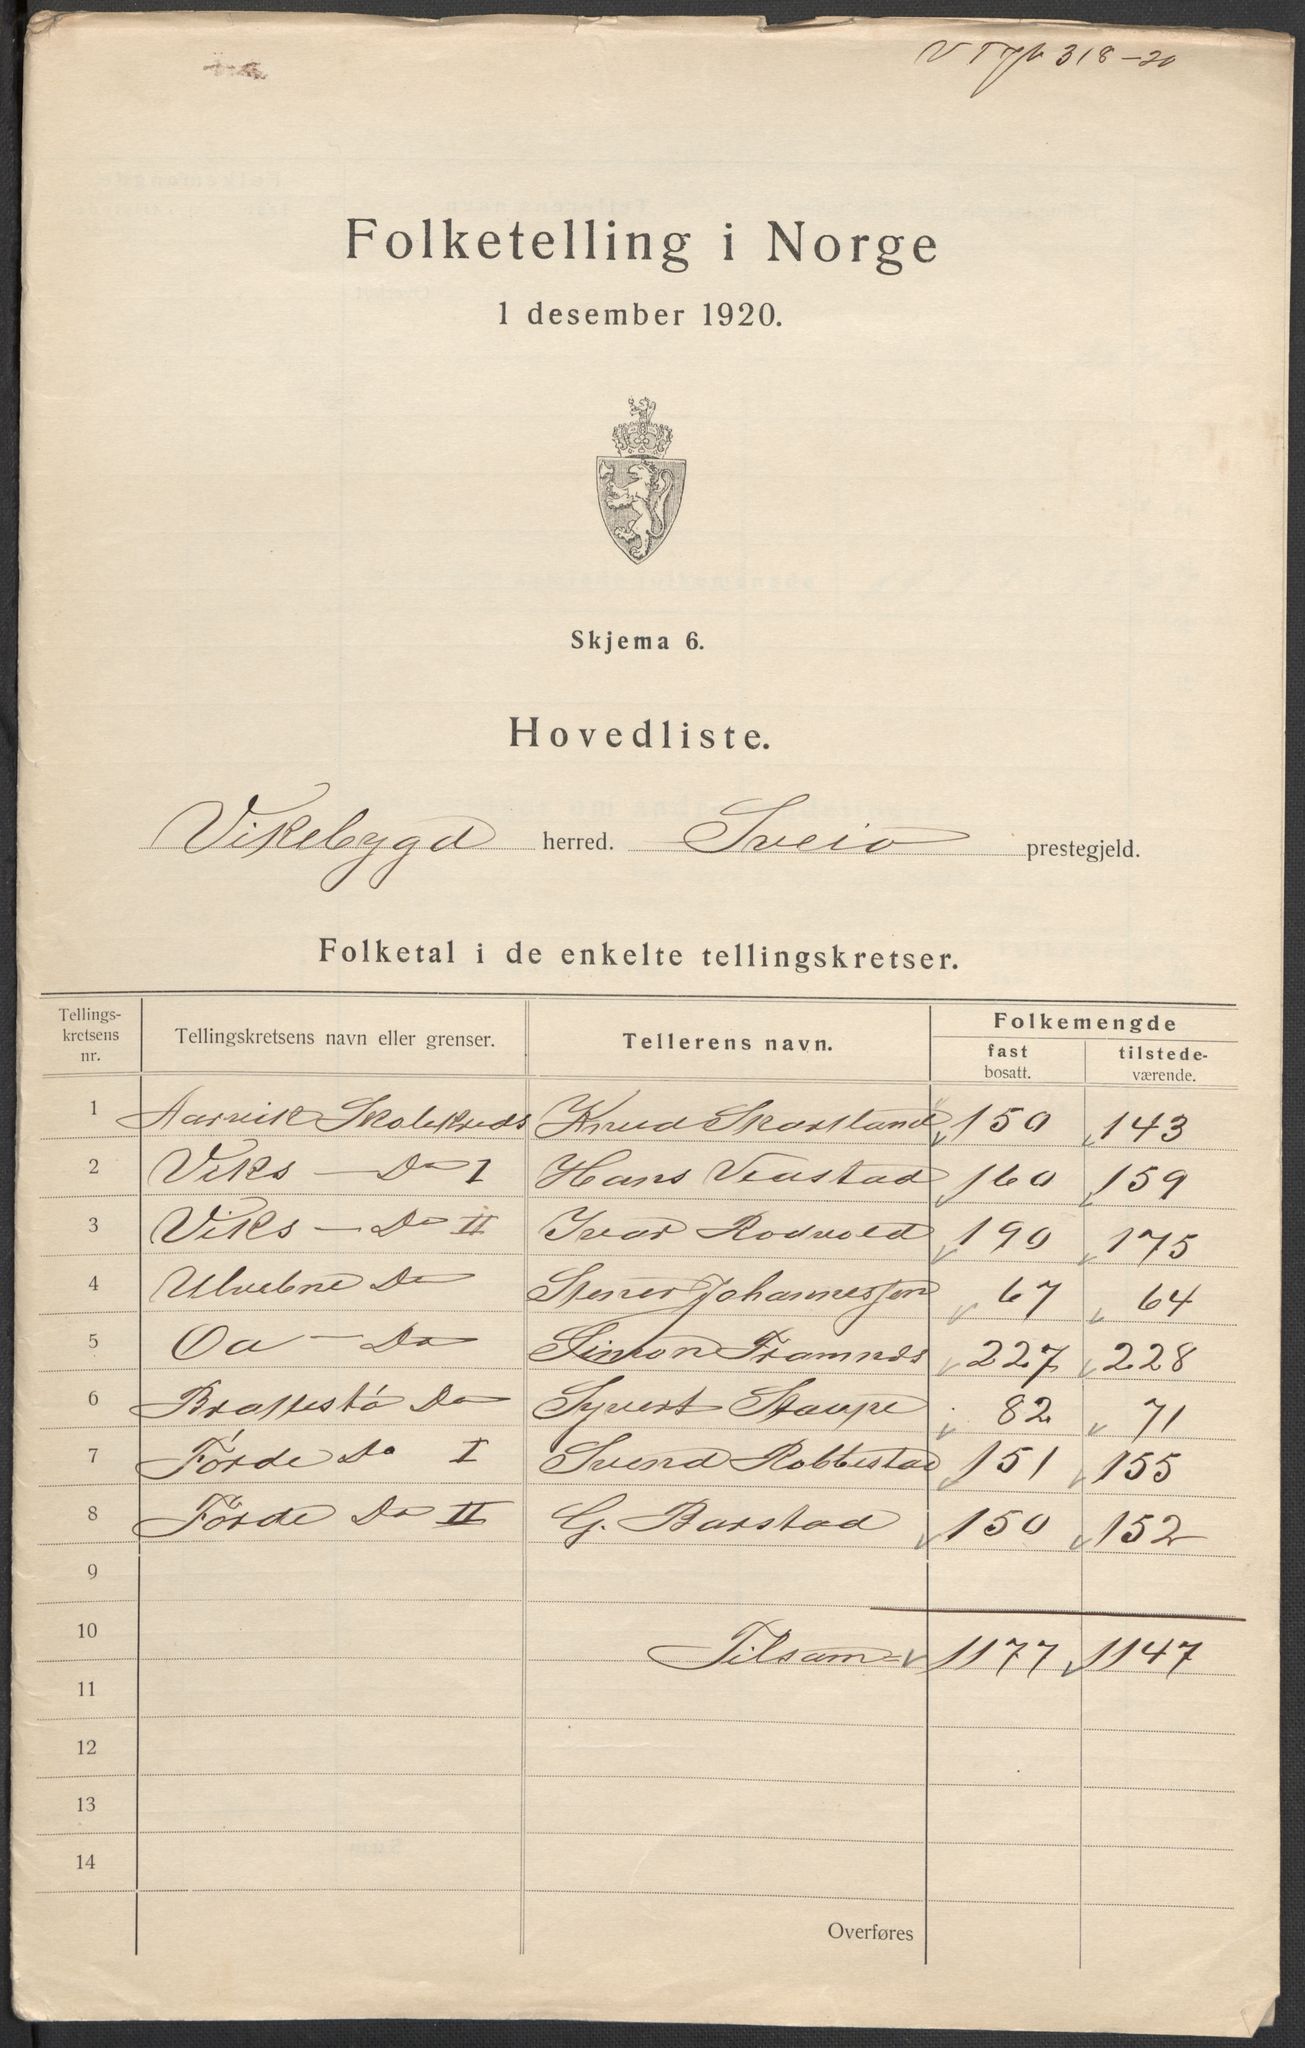 318-20
Folketelling i Norge
1 desember 1920.
Skjema 6.
Hovedliste.
Vikebygd herred. Sveio prestegjeld.
Folketal i de enkelte tellingskretser.
Tellings-kretsens nr. Tellingskretsens navn eller grenser. Tellerens navn. Folkemengde fast bosatt. tilstede-værende.
1 Aarvik Skolekreds Knud Skartland 150 143
2 Viks — Do I Hans 160 159
3 Viks — Do II Ivar Rodvold 190 175
4 Ulvebne Do Stener Johannessen 67 64
5 Oa — Do Simon Framnes 227 228
6 Brattestø Do Syvert Staupe 82 71
7 Førde Do I Svend Robbestad 151 155
8 Førde Do II G. Barstad 150 152
9
10 Tilsam= 1177 1147
11
12
13
14
Overføres